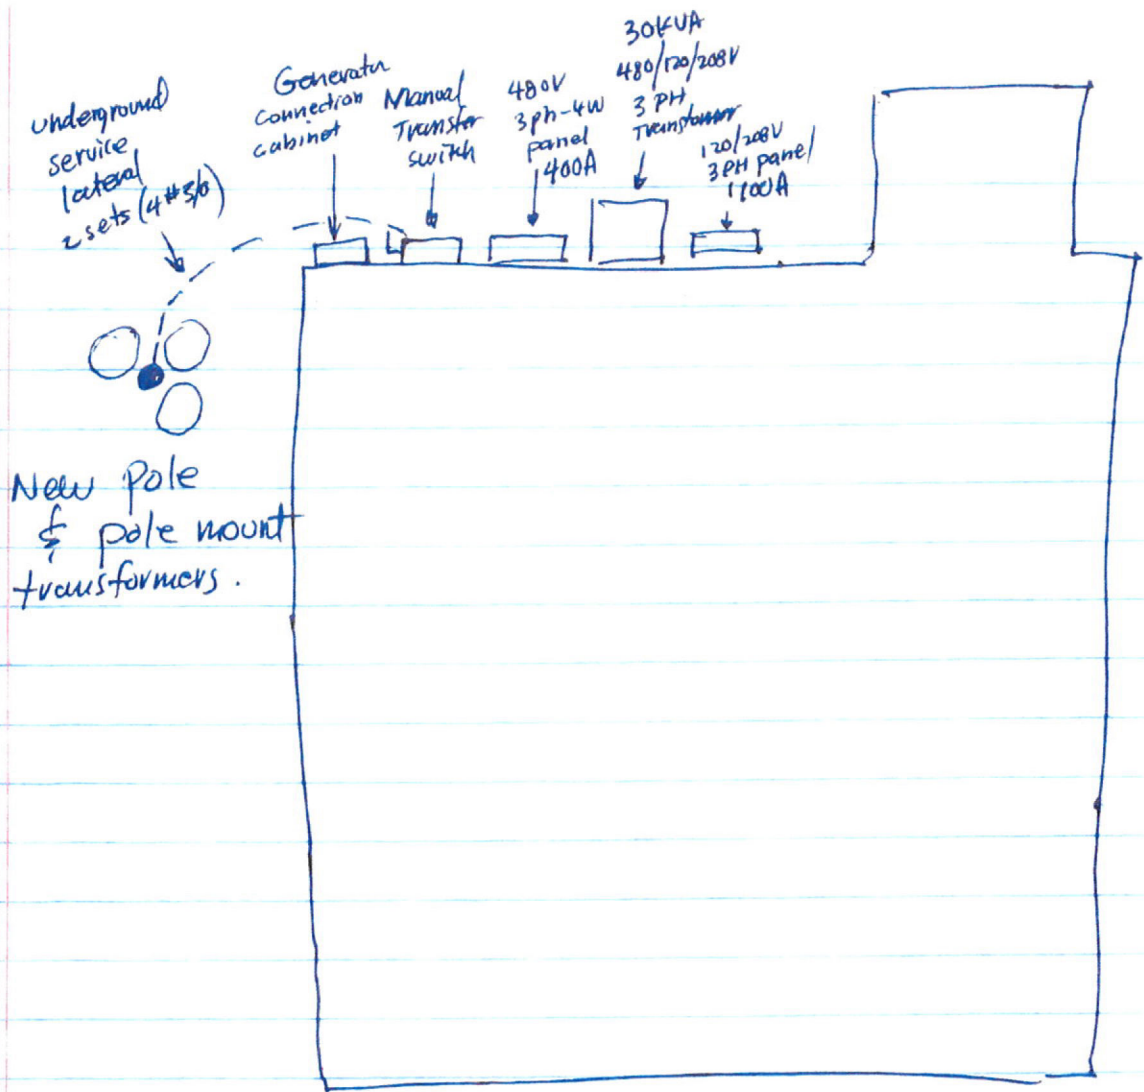 underground
service
lateral
2 sets (4#3/0)
Generator
connection
cabinet
Manual
Transfer
switch
480V
3ph-4w
panel
400A
30KVA
480/120/208V
3 PH
Transformer
120/208V
3PH panel
100A
New pole
& pole mount
transformers.